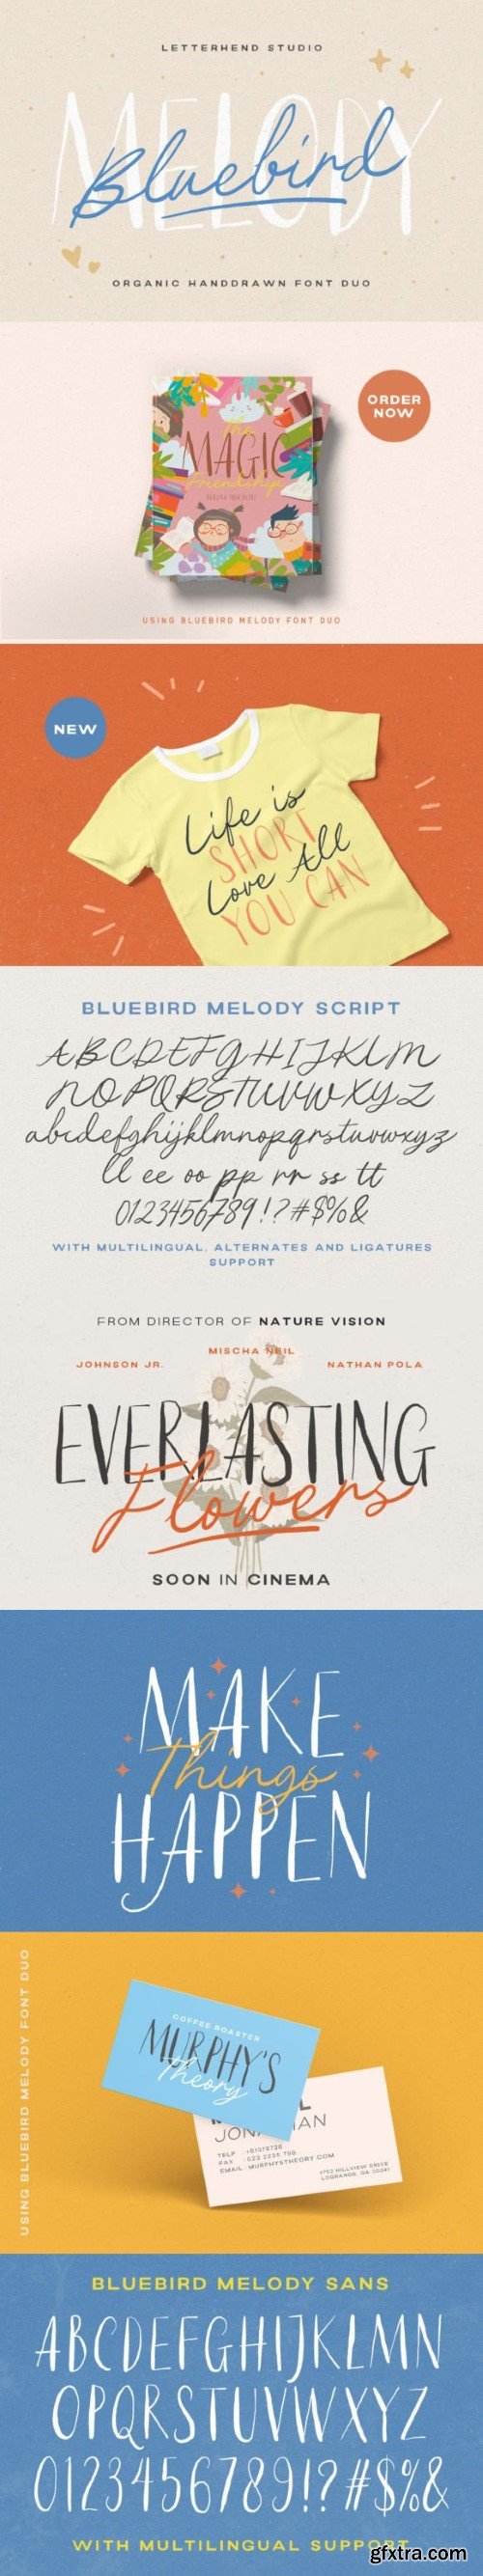 LETTERHEND STUDIO
MELODY
Bluebird
ORGANIC HANDDRAWN FONT DUO
ORDER
NOW
The
MAGIC
Friendship
USING BLUEBIRD MELODY FONT DUO
NEW
Life is
SHORT
Love All
YOU CAN
BLUEBIRD MELODY SCRIPT
ABCDEFGHIJKLM
NOPQRSTUVWXYZ
abcdefghijklmnopqrstuvwxyz
ll ee oo pp rr ss tt
0123456789!?#$%&
WITH MULTILINGUAL, ALTERNATES AND LIGATURES
SUPPORT
FROM DIRECTOR OF NATURE VISION
MISCHA NEIL
JOHNSON JR. NATHAN POLA
EVERLASTING
Flowers
SOON IN CINEMA
MAKE
Things
HAPPEN
USING BLUEBIRD MELODY FONT DUO
COFFEE ROASTER
MURPHY'S
Theory
TELP
FAX : 023 2235 799
EMAIL : MURPHYSTHEORY.COM
HILLVIEW DRIVE
BLUEBIRD MELODY SANS
ABCDEFGHIJKLMN
OPQRSTUVWXYZ
0123456789!?#$%&
WITH MULTILINGUAL SUPPORT
gfxtra.com